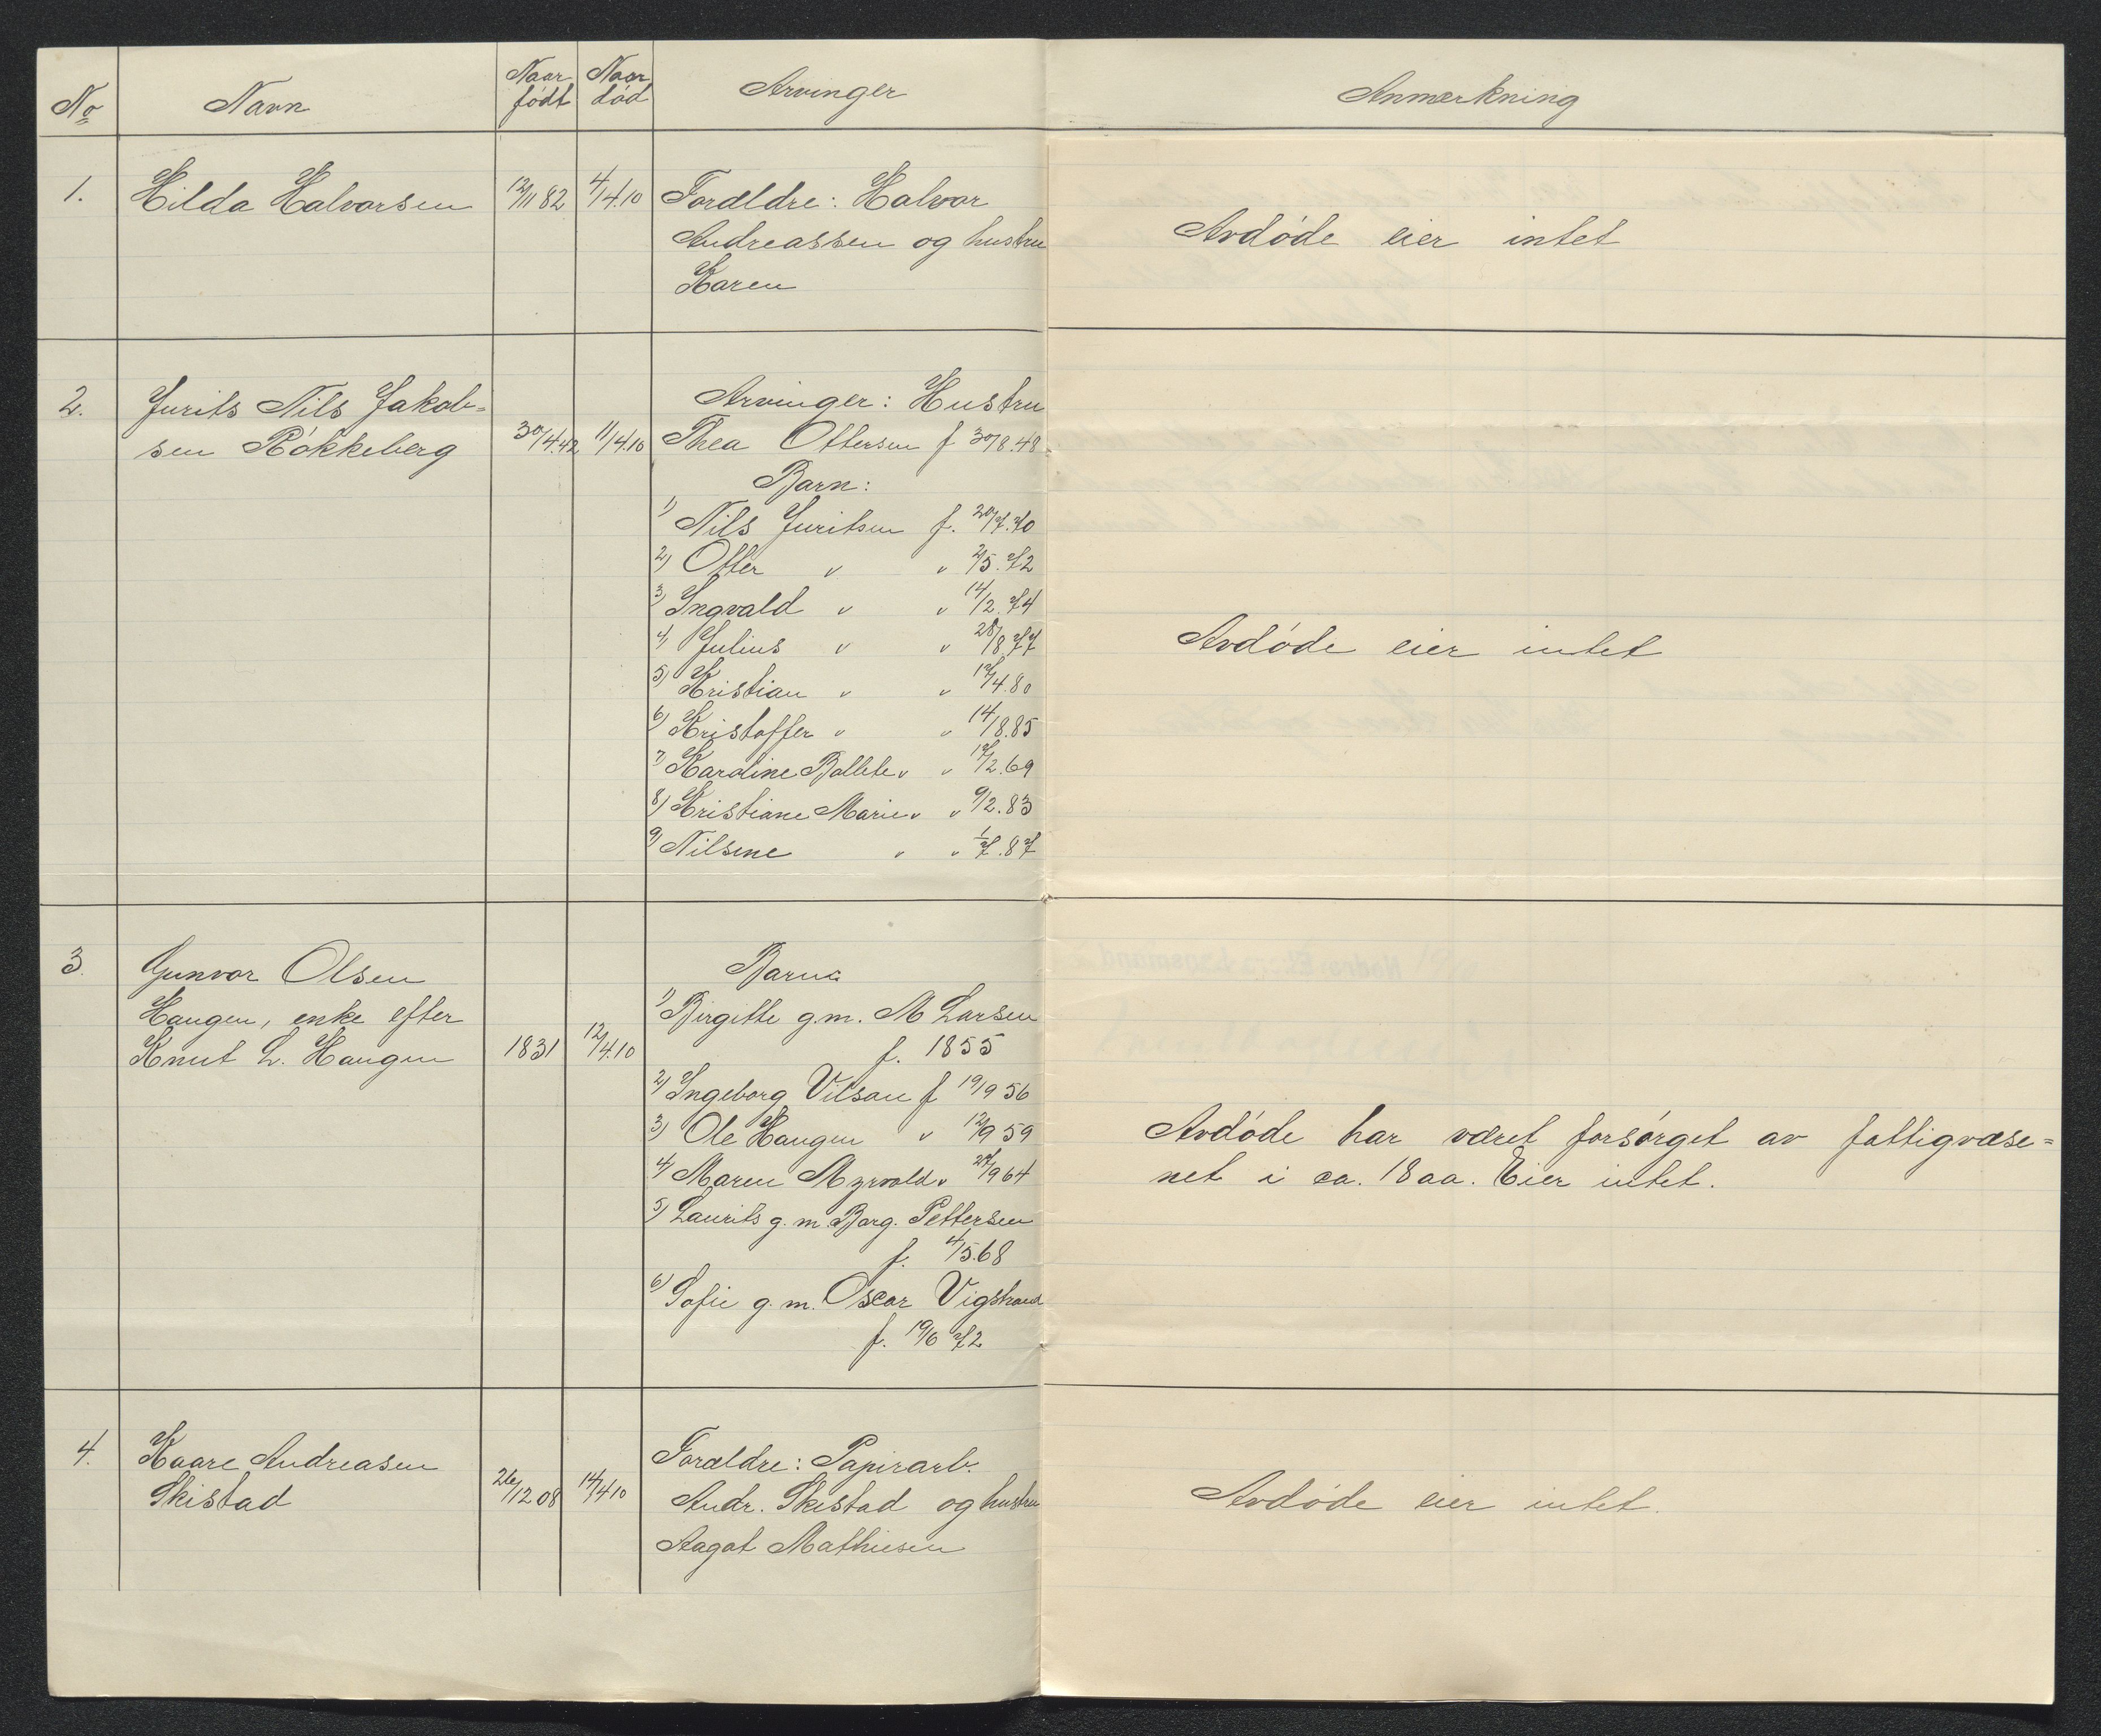 No Navn Naar født Naar død Arvinger Anmerkning
1. Hilda Halvorsen 12/11 82 4/4.10 Forældre: Halvor
Andreassen og hustru
Karen
Avdøde eier intet
2. Jurits Nils Jakob=
sen Røkkeberg 30/4.42 11/4.10
Arvinger: Hustru
Thea Ottersen f 30/8.48
Barn:
1) Nils Juritsen f. 20/7.70
2) Otter " " 2/5.72
3) Ingvald " " 14/2.74
4) Julius " " 28/8 77
5) Kristian " " 17/4.80
6) Kristoffer " " 14/8.85
7) Karoline Bollete " " 17/2.69
8) Kristiane Marie " " 9/2.83
9) Nilsine " " 1/7.87
Avdøde eier intet
3. Gunvor Olsen
Haugen, enke efter
Knut L. Haugen 1831 12/4.10
Barn:
1) Birgitte g.m. M Larsen
f. 1855
2) Ingeborg Vilsan f 19/9 56
3) Ole Haugen " 12/9 59
4) Maren Myrvold " 27/9 64
5) Laurits g.m. Borg. Pettersen
f. 4/5.68
6) Sofie g.m. Oscar Vigstrand
f. 19/6 72
Avdøde har været forsørget av fattigvæse=
net i ca. 18 aa. Eier intet.
4. Kaare Andreasen
Skistad 26/12 08 14/4 10
Forældre: Papirarb.
Andr. Skistad og hustru
Aagot Mathiesen
Avdøde eier intet.